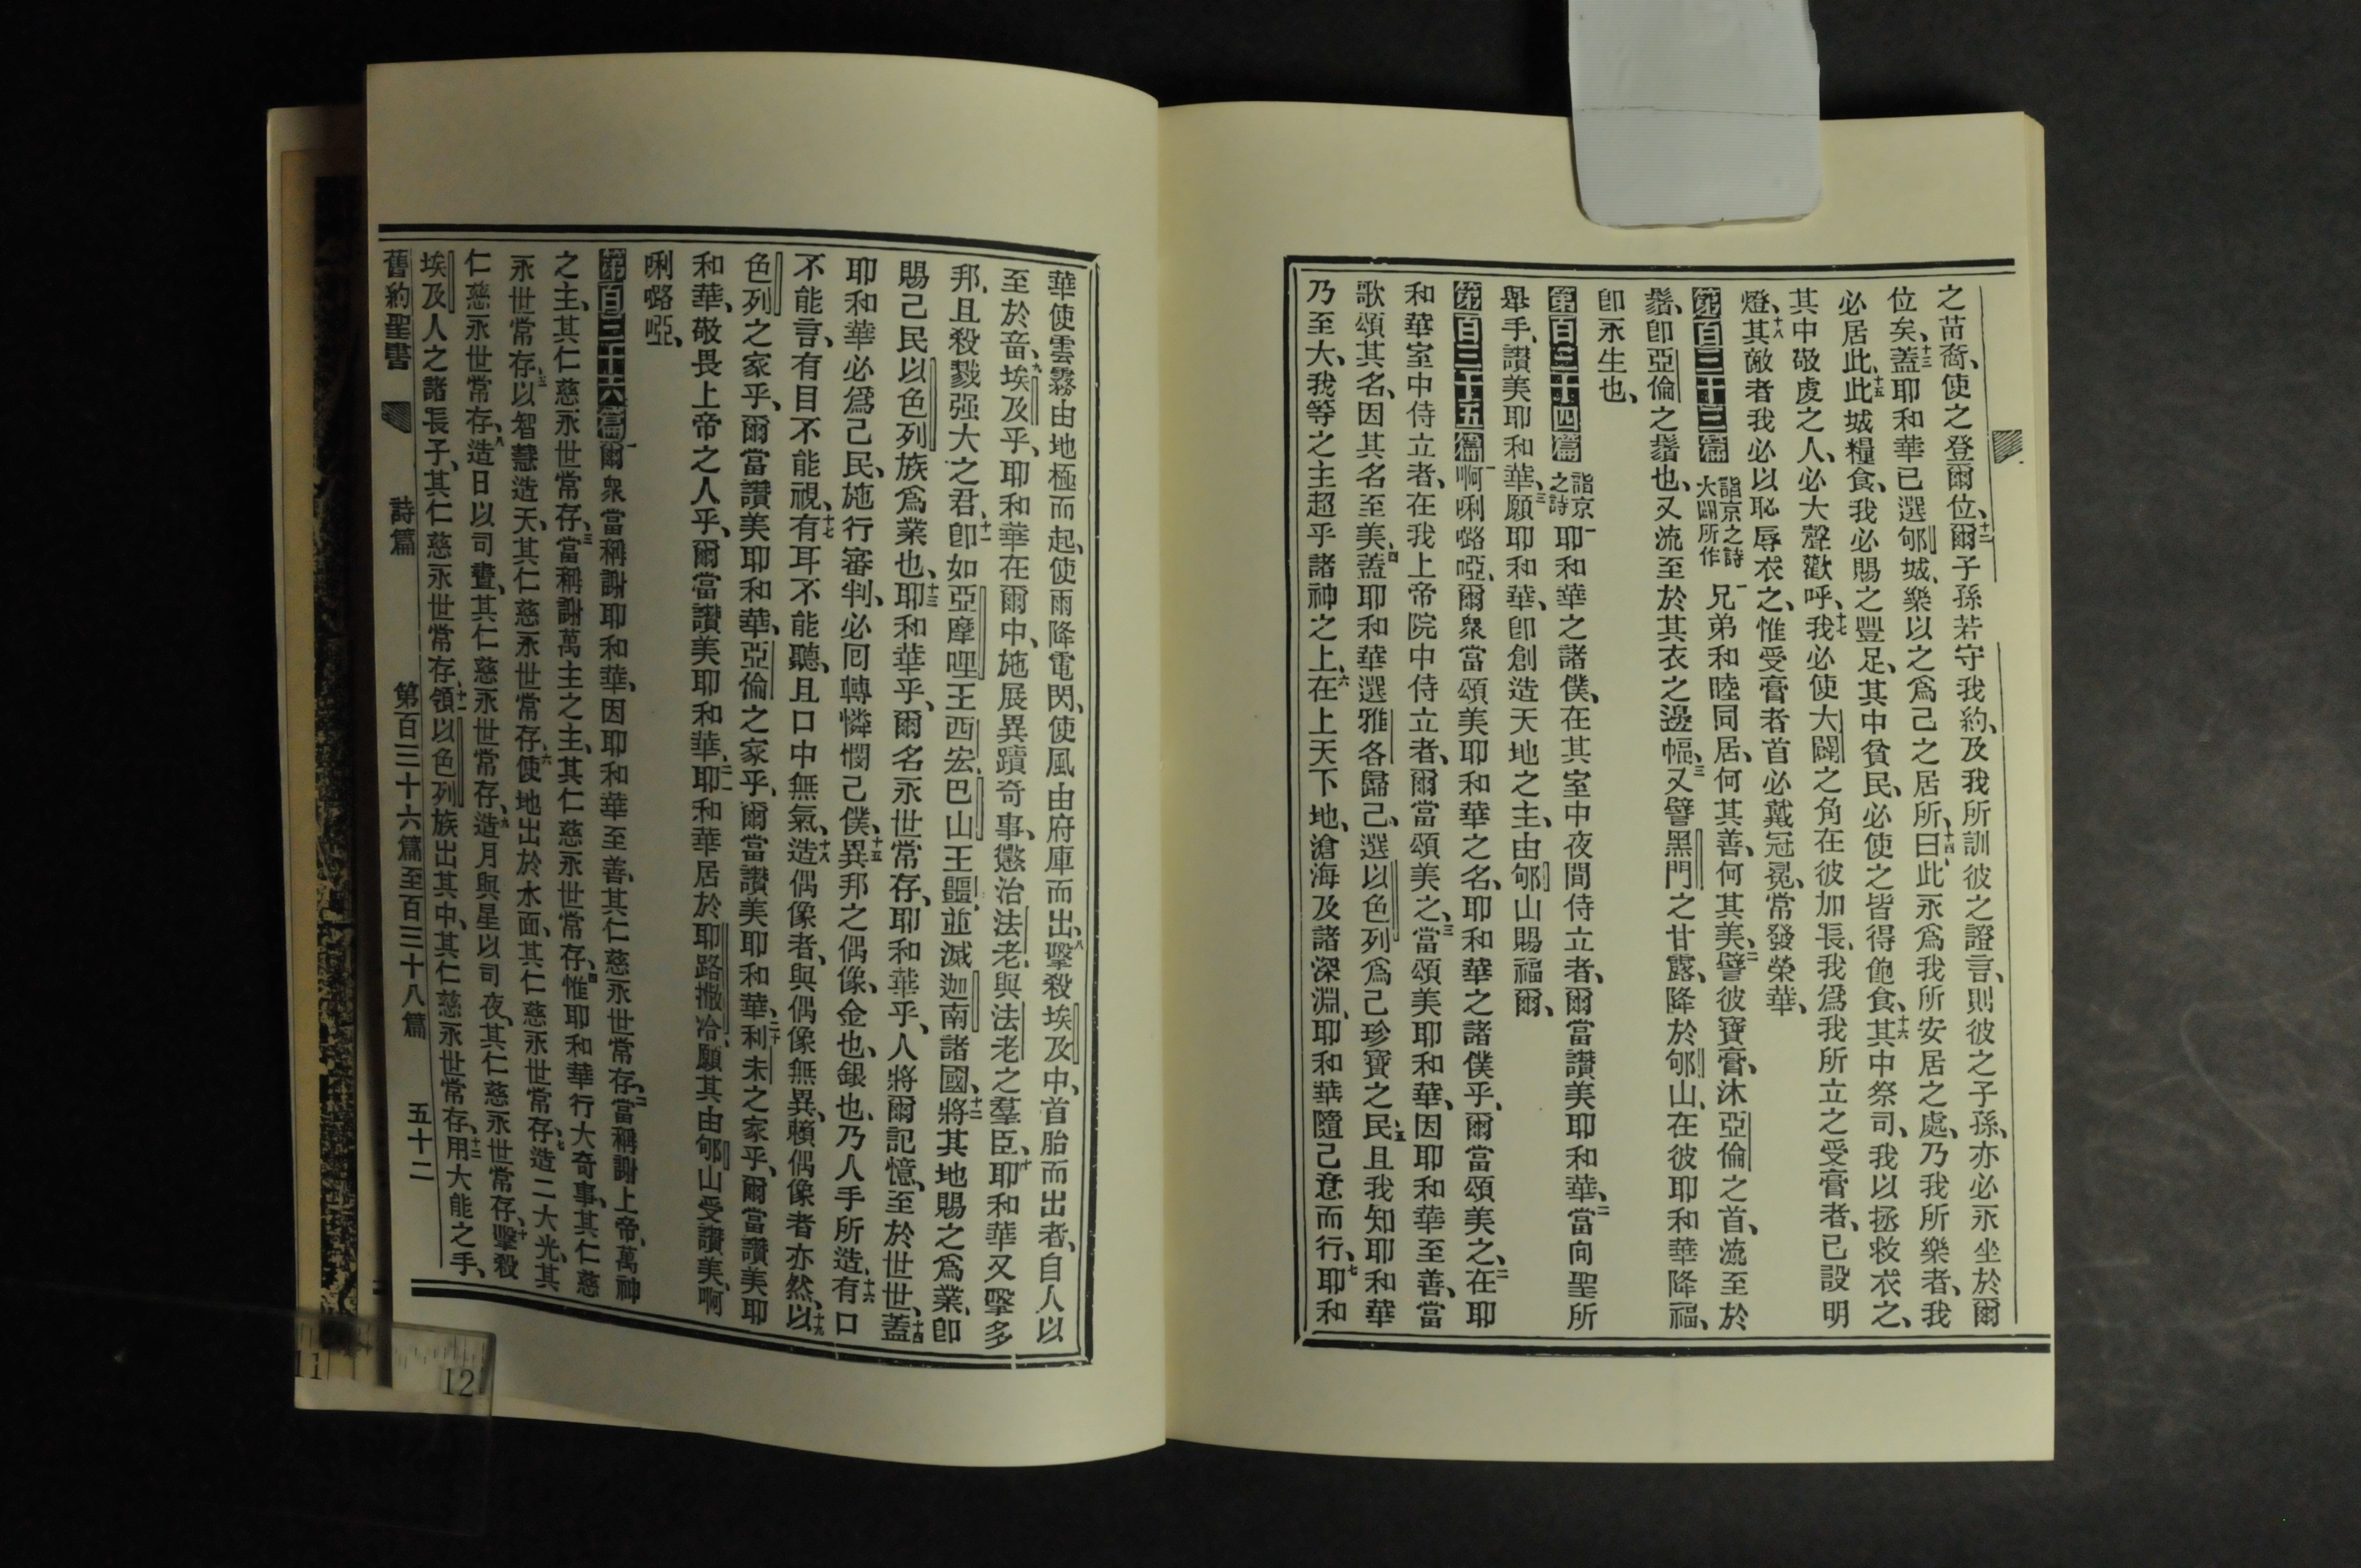 之苗裔、使之登爾位、十二爾子孫若守我約、及我所訓彼之證言、則彼之子孫、亦必永坐於爾
位矣、十三蓋耶和華已選郇城、樂以之爲己之居所、十四曰、此永爲我所安居之處、乃我所樂者、我
必居此、十五此城糧食、我必賜之豐足、其中貧民、必使之皆得飽食、十六其中祭司、我以拯救衣之、
其中敬虔之人、必大聲歡呼、十七我必使大闢之角在彼加長、我爲我所立之受膏者、已設明
燈、十八其敵者我必以恥辱衣之、惟受膏者首必戴冠冕、常發榮華、
第百三十三篇 詣京之詩大闢所作 一兄弟和睦同居、何其善、何其美、二譬彼寶膏、沐亞倫之首、流至於
鬍、卽亞倫之鬍也、又流至於其衣之邊幅、三又譬黑門之甘露、降於郇山、在彼耶和華降福、
卽永生也、
第百三十四篇 詣京之詩 一耶和華之諸僕、在其室中夜間侍立者、爾當讚美耶和華、二當向聖所
舉手、讚美耶和華、三願耶和華、卽創造天地之主、由郇山賜福爾、
第百三十五篇 一啊唎嚕啞、爾衆當頌美耶和華之名、耶和華之諸僕乎、爾當頌美之、二在耶
和華室中侍立者、在我上帝院中侍立者、爾當頌美之、三當頌美耶和華、因耶和華至善、當
歌頌其名、因其名至美、四蓋耶和華選雅各歸己、選以色列爲己珍寶之民、五且我知耶和華
乃至大、我等之主超乎諸神之上、六在上天下地、滄海及諸深淵、耶和華隨己意而行、七耶和
華使雲霧由地極而起、使雨降電閃、使風由府庫而出、八擊殺埃及中、首胎而出者、自人以
至於畜、九埃及乎、耶和華在爾中、施展異蹟奇事、懲治法老、與法老之羣臣、十耶和華又擊多
邦、且殺戮强大之君、十一卽如亞摩哩王西宏、巴山王噩、並滅迦南諸國、十二將其地賜之爲業、卽
賜己民以色列族爲業也、十三耶和華乎、爾名永世常存、耶和華乎、人將爾記憶、至於世世、十四蓋
耶和華必爲己民、施行審判、必囘轉憐憫己僕、十五異邦之偶像、金也、銀也、乃人手所造、十六有口
不能言、有目不能視、十七有耳不能聽、且口中無氣、十八造偶像者、與偶像無異、賴偶像者亦然、十九以
色列之家乎、爾當讚美耶和華、亞倫之家乎、爾當讚美耶和華、二十利未之家乎、爾當讚美耶
和華、敬畏上帝之人乎、爾當讚美耶和華、二一耶和華居於耶路撒冷、願其由郇山受讚美、啊
唎嚕啞、
第百三十六篇 一爾衆當稱謝耶和華、因耶和華至善、其仁慈永世常存、二當稱謝上帝、萬神
之主、其仁慈永世常存、三當稱謝萬主之主、其仁慈永世常存、四惟耶和華行大奇事、其仁慈
永世常存、五以智慧造天、其仁慈永世常存、六使地出於水面、其仁慈永世常存、七造二大光、其
仁慈永世常存、八造日以司晝、其仁慈永世常存、九造月與星以司夜、其仁慈永世常存、十擊殺
埃及人之諸長子、其仁慈永世常存、十一領以色列族出其中、其仁慈永世常存、十二用大能之手、
舊約聖書 詩篇 第百三十六篇至百三十八篇 五十二
11
12